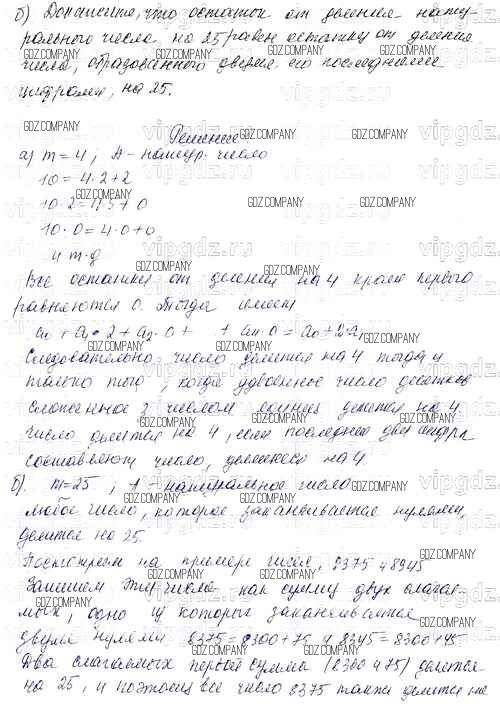 б) Докажите, что остаток от деления нату
рального числа на 25 равен остатку от деления
числа, образованного двумя его последними
цифрами, на 25.
Решение:
а) m = 4; А - натур. число
10 = 4·2+2
10·2 = 4·5+0
10·0 = 4·0+0
и т.д
Все остатки от деления на 4 кроме первого
равняются 0. Тогда имеем
a₀ + a₁·2 + a₂·0 + + aₙ·0 = a₀ + 2a₁
Следовательно число делится на 4 тогда и
только тогда, когда удвоенное число десятков
сложенное с числом единиц делится на 4.
Число делится на 4, если последние две цифры
составляют число, делящееся на 4
б). m=25; А - натуральное число
Любое число, которое заканчивается нулями,
делится на 25.
Посмотрим на примере чисел, 8375 и 8345
Запишем эти числа как сумму двух слагае-
мых, одно из которых заканчивается
двумя нулями 8375 = 8300+75 и 8345 = 8300+45
Два слагаемых первой суммы (8300 и 75) делятся
на 25, и поэтому все число 8375 также делится на